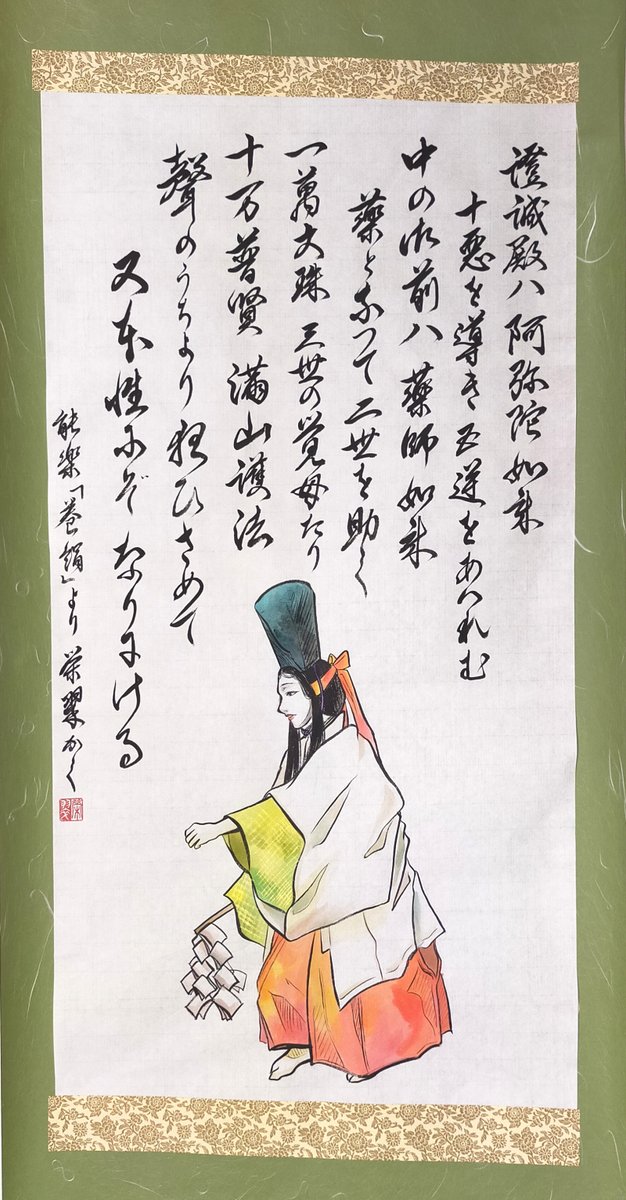 證誠殿ハ 阿弥陀如来
十悪を導き 五逆をあハれむ
中の御前ハ 薬師如来
薬となつて 二世を助く
一萬文殊 三世の覚母たり
十万普賢 満山護法
聲のうちより 狂ひさめて
又本性にぞ なりにける
能楽「巻絹」より 栄翠かく